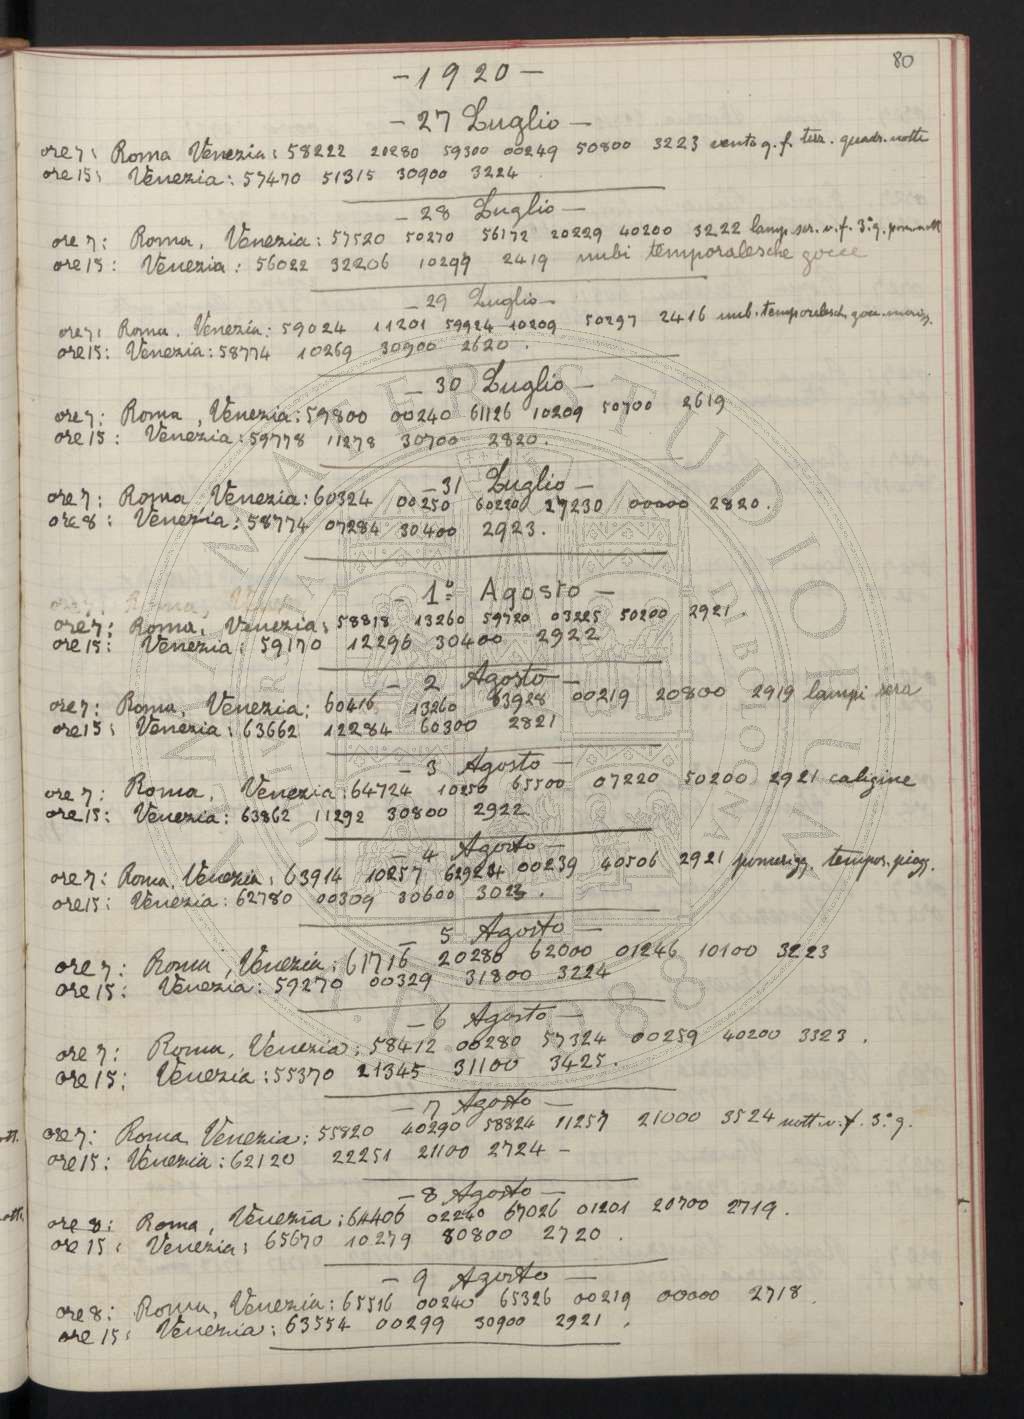 80
- 1920 -
- 27 Luglio -
ore 7: Roma Venezia: 58222 20280 59300 00249 50800 3223 vento g. f. terz. quadr. notte
ore 15: Venezia: 57470 51315 30900 3224
- 28 Luglio -
ore 7: Roma, Venezia: 57520 50270 56172 20229 40200 3222 lamp. ser. v. f. 3° g.
ore 15: Venezia: 56022 32206 10299 2419 nubi temporalesche gocce
- 29 Luglio -
ore 7: Roma, Venezia: 59024 11201 59924 10209 50297 2416 nub. temporalesch. gocc.
ore 15: Venezia: 58774 10269 30900 2620.
- 30 Luglio -
ore 7: Roma, Venezia: 59800 00240 61126 10209 50700 2619
ore 15: Venezia: 59778 11278 30700 2820.
- 31 Luglio -
ore 7: Roma, Venezia: 60324 00250 60220 27230 00000 2820.
ore 8: Venezia: 58774 07284 30400 2923.
- 1° Agosto -
ore 7: Roma, Venez
ore 7: Roma, Venezia: 58818 13260 59720 03225 50200 2921.
ore 15: Venezia: 59170 12296 30400 2922
- 2 Agosto -
ore 7: Roma, Venezia: 60416 13260 63928 00219 20800 2919 lampi sera
ore 15: Venezia: 63662 12284 60300 2821
- 3 Agosto -
ore 7: Roma, Venezia: 64724 10250 65500 07220 50200 2921 caligine
ore 15: Venezia: 63862 11292 30800 2922
- 4 Agosto -
ore 7: Roma, Venezia: 63914 10257 62924 00239 40506 2921 pomerigg. tempor. piogg.
ore 15: Venezia: 62780 00309 30600 3023.
- 5 Agosto -
ore 7: Roma, Venezia: 61716 20280 62000 01246 10100 3223
ore 15: Venezia: 59270 00329 31800 3224
- 6 Agosto -
ore 7: Roma, Venezia: 58412 00280 57324 00259 40200 3323.
ore 15: Venezia: 55370 21345 31100 3425.
- 7 Agosto -
ore 7: Roma, Venezia: 55820 40290 58824 11257 21000 3524 nott. v. f. 3° g.
ore 15: Venezia: 62120 22251 21100 2724 -
- 8 Agosto -
ore 8: Roma, Venezia: 64406 02240 67026 01201 20700 2719.
ore 15: Venezia: 65670 10279 80800 2720.
- 9 Agosto -
ore 8: Roma, Venezia: 65516 00240 65326 00219 00000 2718.
ore 15: Venezia: 63554 00299 30900 2921.